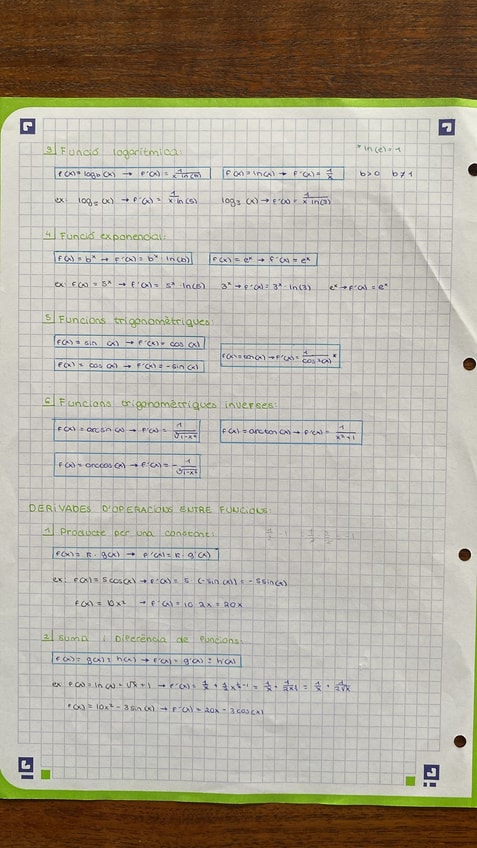 3| Funció logarítmica:
* ln(e)=1
F(x)=log_b(x) → F'(x)= 1/(x ln(b))   F(x)=ln(x) → F'(x)= 1/x   b>0 b≠1
ex: log₅(x) → F'(x)= 1/(x ln(5))   log₃(x) → F'(x)= 1/(x ln(3))
4| Funció exponencial:
F(x)= bˣ → F'(x)= bˣ · ln(b)   F(x)= eˣ → F'(x)= eˣ
ex: F(x)= 5ˣ → F'(x)= 5ˣ ln(5)   3ˣ → F'(x)= 3ˣ · ln(3)   eˣ → F'(x)= eˣ
5| Funcions trigonomètriques:
F(x)= sin (x) → F'(x)= cos (x)
F(x)=tan(x) → F'(x)= 1/cos²(x) *
F(x)= cos (x) → F'(x)= -sin(x)
6| Funcions trigonomètriques inverses:
F(x)= arcsin(x) → F'(x)= 1/√(1-x²)   F(x)= arctan(x) → F'(x)= 1/(x²+1)
F(x)= arccos(x) → F'(x)= - 1/√(1-x²)
DERIVADES D'OPERACIONS ENTRE FUNCIONS:
1| Producte per una constant:
F(x)= K · g(x) → F'(x)= K · g'(x)
ex: F(x)= 5cos(x) → F'(x)= 5 · (-sin(x)) = -5sin(x)
F(x)= 10x² → F'(x)= 10 · 2x = 20x
2| Suma i Diferència de funcions:
F(x)= g(x) ± h(x) → F'(x)= g'(x) ± h'(x)
ex: F(x)= ln(x) + √x + 1 → F'(x)= 1/x + 1/2 x^(1/2 -1) = 1/x + 1/(2x^½) = 1/x + 1/(2√x)
F(x)= 10x² - 3sin(x) → F'(x)= 20x - 3cos(x)